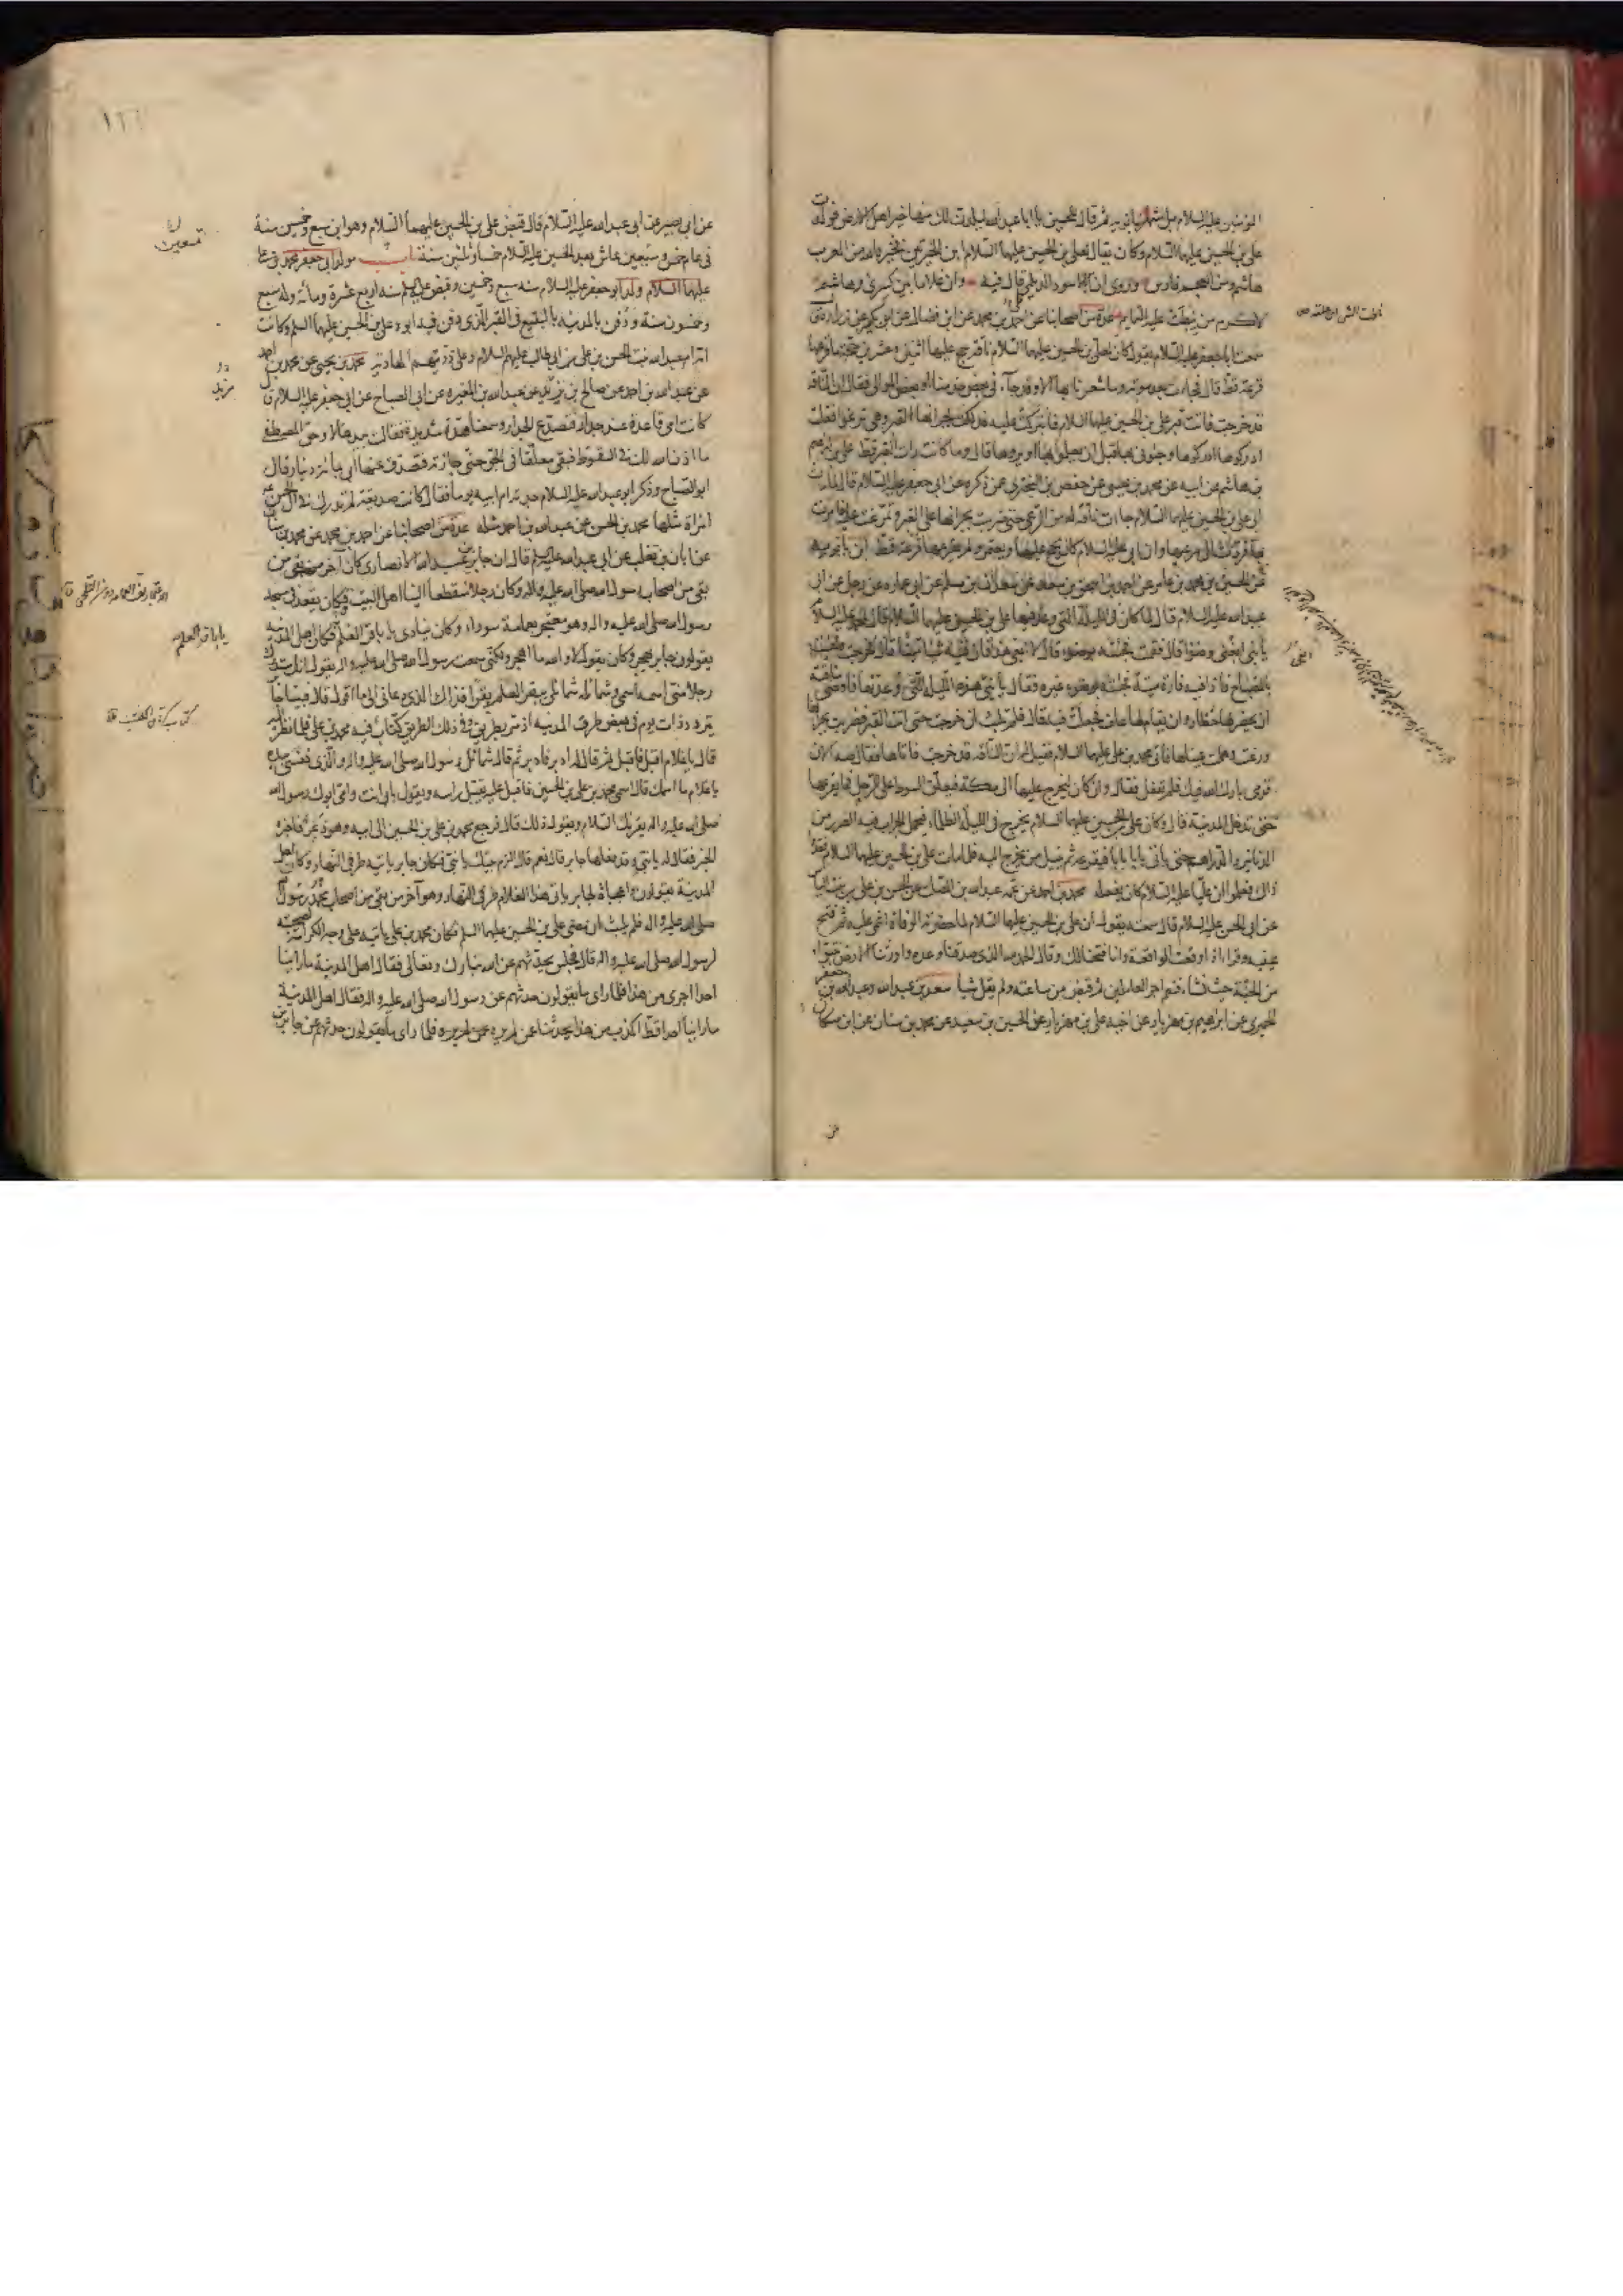 المؤمنين عليه السلام بل شهربانويه ثم قال للحسين يا ابا عبد الله ليلدن لك منها خير اهل الارض فولدت
علي بن الحسين عليهما السلام وكان يقال لعلي بن الحسين عليهما السلام ابن الخيرتين فخيرة الله من العرب
هاشم ومن العجم فارس وروي ان ابا الاسود الدئلي قال فيه وان غلاما بين كسرى وهاشم
لاكرم من نيطت عليه التمايم عدة من اصحابنا عن احمد بن محمد عن ابن فضال عن ابن بكير عن زرارة قال
سمعت ابا جعفر عليه السلام يقول كان لعلي بن الحسين عليهما السلام ناقة حج عليها اثنتين وعشرين حجة ما قرعها
قرعة قط قال فجاءت بعد موته وما شعرنا بها الا وقد جاءني بعض خدمنا او بعض الموالي فقال ان الناقة
قد خرجت فاتت قبر علي بن الحسين عليهما السلام فانبركت عليه فدلكت بجرانها القبر وهي ترغو فقلت
ادركوها ادركوها وجئوني بها قبل ان يعلموا بها او يروها قال وما كانت رات القبر قط علي بن ابرهيم
بن هاشم عن ابيه عن محمد بن عيسى عن حفص بن البختري عمن ذكره عن ابي جعفر عليه السلام قال لما مات
ابي علي بن الحسين عليهما السلام جاءت ناقة له من الرعي حتى ضربت بجرانها على القبر وتمرغت عليه فامرت
بها فردت الى مرعيها وان ابي عليه السلام كان يحج عليها ويعتمر ولم يقرعها قرعة قط ابن بابويه
عن الحسين بن محمد بن عامر عن احمد بن اسحق بن سعد عن سعدان بن مسلم عن ابي عمارة عن رجل عن ابي
عبد الله عليه السلام قال لما كان في الليلة التي وعد فيها علي بن الحسين عليهما السلام قال لمحمد عليه السلام
يا بني ابغني وضوءا قال فقمت فجئته بوضوء قال لا ابغي هذا فان فيه شيئا ميتا قال فخرجت فجئت
بالمصباح فاذا فيه فارة ميتة فجئته بوضوء غيره فقال يا بني هذه الليلة التي وعدتها فاوصى بناقته
ان يحضر لها حظار وان يقام لها علف فجعلت فيه قال فلم تلبث ان خرجت حتى اتت القبر فضربت بجرانها
ورغت وهملت عيناها فاتى محمد بن علي عليهما السلام فقيل له ان الناقة قد خرجت فاتاها فقال صه الان
قومي بارك الله فيك فلم تفعل فقال وان كان ليخرج عليها الى مكة فيعلق السوط على الرحل فما يقرعها
حتى يدخل المدينة قال وكان علي بن الحسين عليهما السلام يخرج في الليلة الظلماء فيحمل الجراب فيه الصرر من
الدنانير والدراهم حتى ياتي بابا بابا فيقرعه ثم ينيل من يخرج اليه فلما مات علي بن الحسين عليهما السلام فقدوا
ذاك فعلموا ان عليا عليه السلام كان يفعله محمد بن احمد عن عمه عبد الله بن الصلت عن الحسن بن علي بن بنت الياس
عن ابي الحسن عليه السلام قال سمعته يقول ان علي بن الحسين عليهما السلام لما حضرته الوفاة اغمي عليه ثم فتح
عينيه وقرا اذا وقعت الواقعة وانا فتحنا لك وقال الحمد لله الذي صدقنا وعده واورثنا الارض نتبوا
من الجنة حيث نشاء فنعم اجر العاملين ثم قبض من ساعته ولم يقل شيا سعد بن عبد الله وعبد الله بن جعفر
الحميري عن ابراهيم بن مهزيار عن اخيه علي بن مهزيار عن الحسين بن سعيد عن محمد بن سنان عن ابن مسكان
عن ابي بصير عن ابي عبد الله عليه السلام قال قبض علي بن الحسين عليهما السلام وهو ابن سبع وخمسين سنة
في عام خمس وتسعين عاش بعد الحسين عليه السلام خمسا وثلثين سنة باب مولد ابي جعفر محمد بن علي
عليهما السلام ولد ابو جعفر عليه السلام سنه سبع وخمسين وقبض عليه السلم سنه اربع عشرة ومائة وله سبع
وخمسون سنة ودفن بالمدينه بالبقيع في القبر الذي دفن فيه ابوه علي بن الحسين عليهما السلم وكانت
امه ام عبد الله بنت الحسن بن علي بن ابي طالب عليهم السلام وعلى ذريتهم الهادية محمد بن يحيى عن محمد بن احمد
عن عبد الله بن احمد عن صالح بن مزيد عن عبد الله بن المغيره عن ابي الصباح عن ابي جعفر عليه السلام قال
كانت امي قاعدة عند جدار فتصدع الجدار وسمعنا هدة شديدة فقالت بيدها لا وحق المصطفى
ما اذن الله لك في السقوط فبقي معلقا في الجو حتى جازته فتصدق عنها ابي بمائة دينار قال
ابو الصباح وذكر ابو عبد الله عليه السلام جدته ام ابيه يوما فقال كانت صديقة لم تدرك في ال الحسن
امراة مثلها محمد بن الحسن عن عبد الله بن احمد مثله عدة من اصحابنا عن احمد بن محمد عن محمد بن سنان
عن ابان بن تغلب عن ابي عبد الله عليه السلم قال ان جابر بن عبد الله الانصاري كان آخر من بقي من
بقي من اصحاب رسول الله صلى الله عليه واله وكان رجلا منقطعا الينا اهل البيت وكان يقعد في مسجد
رسول الله صلى الله عليه واله وهو معتجر بعمامة سوداء وكان ينادي يا باقر العلم فكان اهل المدينه
يقولون جابر يهجر وكان يقول لا والله ما اهجر ولكني سمعت رسول الله صلى الله عليه واله يقول انك ستدرك
رجلا مني اسمه اسمي وشمائله شمائلي يبقر العلم بقرا فذاك الذي دعاني الى ما اقول قال فبينا جابر
يتردد ذات يوم في بعض طرق المدينه اذ مر بطريق في ذلك الطريق كتاب فيه محمد بن علي فلما نظر اليه
قال يا غلام اقبل فاقبل ثم قال له ادبر فادبر ثم قال شمائل رسول الله صلى الله عليه واله والذي نفسي بيده
يا غلام ما اسمك قال اسمي محمد بن علي بن الحسين فاقبل عليه يقبل راسه ويقول بابي انت وامي ابوك رسول الله
صلى الله عليه واله يقرئك السلام ويقول ذلك قال فرجع محمد بن علي بن الحسين الى ابيه وهو ذعر فاخبره
الخبر فقال له يا بني وقد فعلها جابر قال نعم قال الزم بيتك يا بني فكان جابر ياتيه طرفي النهار وكان اهل
المدينة يقولون واعجباه لجابر ياتي هذا الغلام طرفي النهار وهو آخر من بقي من اصحاب محمد رسول
صلى الله عليه واله فلم يلبث ان مضى علي بن الحسين عليهما السلم فكان محمد بن علي ياتيه على وجه الكرامة لصحبته
لرسول الله صلى الله عليه واله قال فجلس يحدثهم عن الله تبارك وتعالى فقال اهل المدينة ما راينا
احدا اجرى من هذا فلما راى ما يقولون حدثهم عن رسول الله صلى الله عليه واله فقال اهل المدينة
ما راينا احدا قط اكذب من هذا يحدثنا عمن لم يره فلما راى ما يقولون حدثهم عن جابر بن
تسعين
مزيد
يا باقر العلم